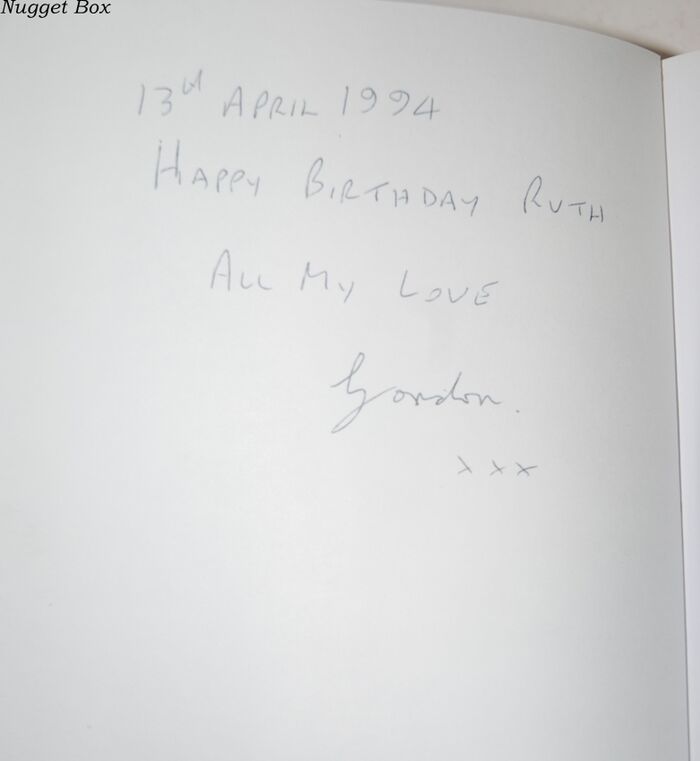 Nugget Box
13th APRIL 1994
HAPPY BIRTHDAY RUTH
ALL MY LOVE
Gordon.
xxx